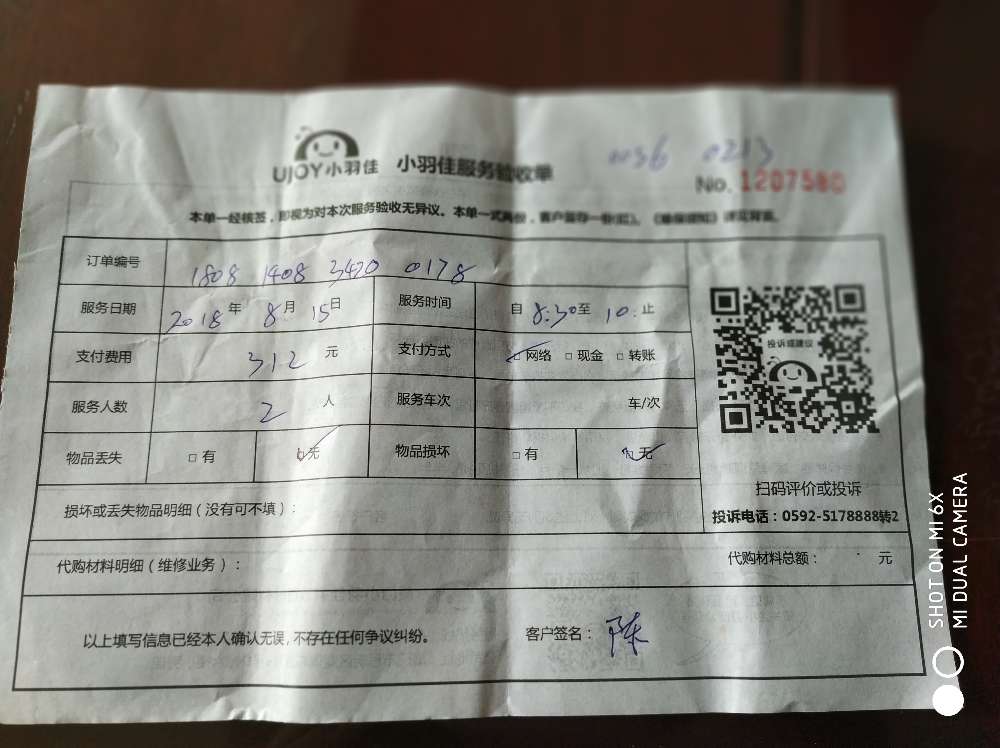 UJOY小羽佳 小羽佳服务验收单
0213
No. 1207580
本单一经核签，即视为对本次服务验收无异议。本单一式两份，客户留存一份(红)。
订单编号 1808 1408 3420 0178
服务日期 2018年 8月 15日 服务时间 自 8:30至 10:止
投诉或建议
支付费用 312 元 支付方式 □网络 □现金 □转账
服务人数 2 人 服务车次 车/次
物品丢失 □有 □无 物品损坏 □有 □无
扫码评价或投诉
损坏或丢失物品明细（没有可不填）：
投诉电话：0592-5178888转2
代购材料明细（维修业务）： 代购材料总额： 元
以上填写信息已经本人确认无误，不存在任何争议纠纷。 客户签名：陈
SHOT ON MI 6X
MI DUAL CAMERA